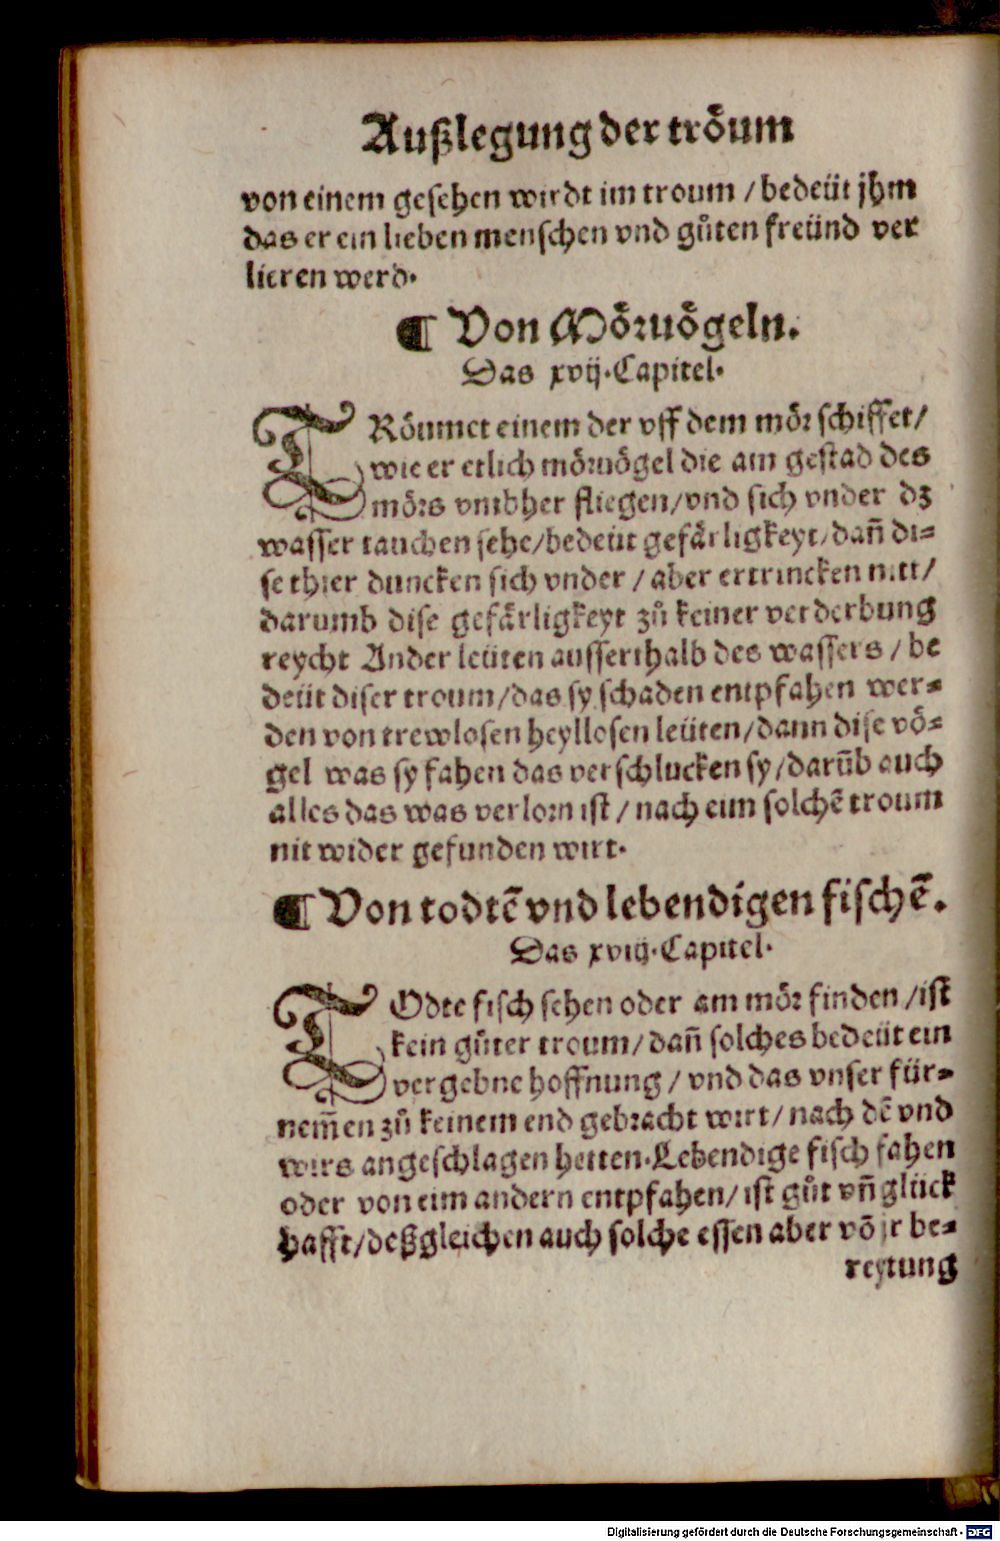 Außlegung der troͤum
von einem gesehen wirdt im troum / bedeüt jhm
das er ein lieben menschen vnd guͦten freünd ver
lieren werd.
¶ Von Moͤruoͤgeln.
Das xvij. Capitel.
TRoͤumet einem der vff dem moͤr schiffet /
wie er etlich moͤruoͤgel die am gestad des
moͤrs vmbher fliegen / vnd sich vnder dz
wasser tauchen sehe / bedeüt gefaͤrligkeyt / dañ di⸗
se thier duncken sich vnder / aber ertrincken nitt /
darumb dise gefaͤrligkeyt zuͦ keiner verderbung
reycht Ander leüten ausserthalb des wassers / be
deüt diser troum / das sy schaden entpfahen wer⸗
den von trewlosen heyllosen leüten / dann dise voͤ⸗
gel was sy fahen das verschlucken sy / darũb auch
alles das was verlorn ist / nach eim solchẽ troum
nit wider gefunden wirt.
¶ Von todtẽ vnd lebendigen fischẽ.
Das xviij. Capitel.
TOdte fisch sehen oder am moͤr finden / ist
kein guͦter troum / dañ solches bedeüt ein
vergebne hoffnung / vnd das vnser für⸗
nem̃en zuͦ keinem end gebracht wirt / nach dẽ vnd
wirs angeschlagen hetten. Lebendige fisch fahen
oder von eim andern entpfahen / ist guͦt vñ glück
hafft / deßgleichen auch solche essen aber võ jr be⸗
reytung
Digitalisierung gefördert durch die Deutsche Forschungsgemeinschaft - DFG